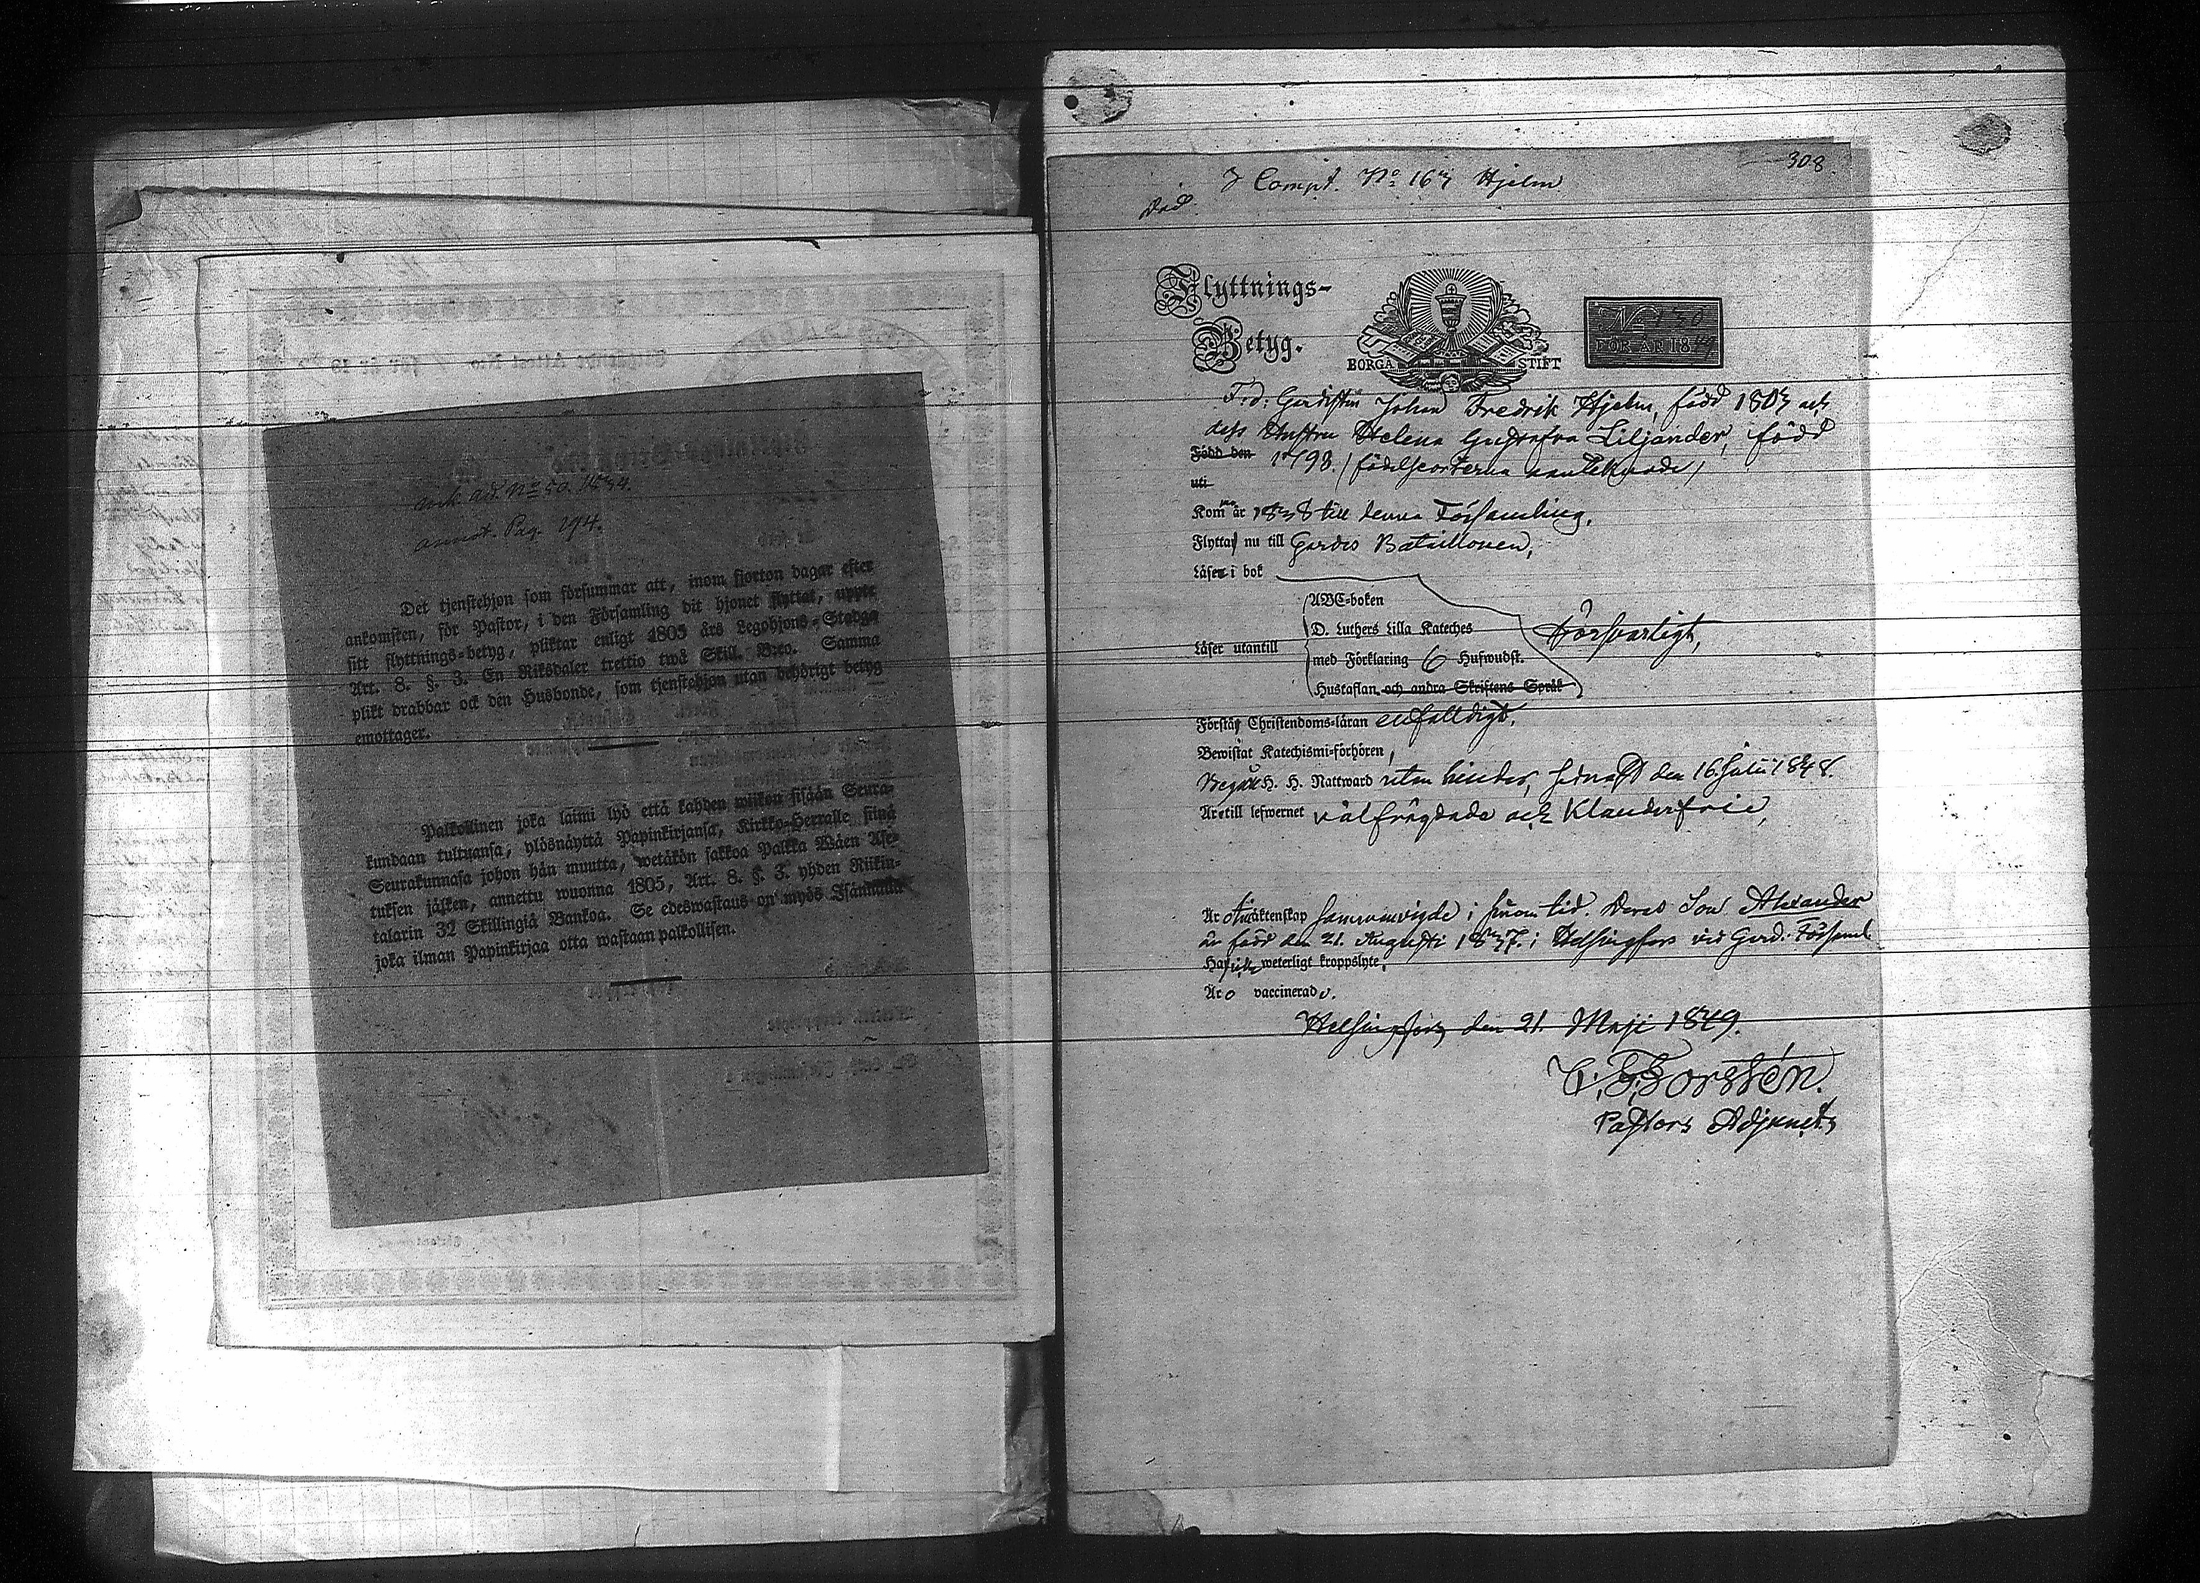 ank. ad. No 50. 1834.
annot. Pag. 294.
Det tjenstehjon som försummar att, inom fjorton dagar efter
ankomsten, för Pastor, i den Församling dit hjonet flyttat, uppte
sitt flyttnings-betyg, pliktar enligt 1805 års Legohjons-Stadga
Art. 8. §. 3. En Riksdaler trettio twå Skill. B:co. Samma
plikt drabbar ock den Husbonde, som tjenstehjon utan behörigt betyg
emottager.
Palkollinen joka laimi lyö että kahden wiikon sisään Seura-
kundaan tultuansa, ylösnäyttä Papinkirjansa, Kirkko-Herralle siinä
Seurakunnasa johon hän muutta, wetäkön sakkoa Palkka Wäen Ase-
tuksen jälken, annettu wuonna 1805, Art. 8. §. 3. yhden Riikin-
talarin 32 Skillingiä Bankoa. Se edeswastaus on myös Isännällä
joka ilman Papinkirjaa otta wastaan palkollisen.
308
Compt. No 163 Hjelm
Flyttnings-
Betyg.
BORGÅ STIFT
No 150
FÖR ÅR 1849
F:d: Gardisten Johan Fredrik Hjelm, född 1803 och
dess Hustru Helena Gustafva Liljander, född
Född den 1798. (födelseorterna oanteknade)
uti
Kommo år 1838 till denna Församling.
Flytta nu till Gardes Bataillonen,
Läser i bok
ABC-boken
D. Luthers Lilla Kateches
Läser utantill
försvarligt,
med Förklaring 6 Hufwudst.
Hustaflan och andra Skriftens Språk
Förstå Christendoms-läran enfaldigt,
Bewistat Katechismi-förhören,
Begått H. H. Nattward utan hinder, sednast den 16 Julii 1848.
Äro till lefwernet välfrägdade och Klanderfrie,
Äro äktenskap sammanvigde i sinom tid. Deras Son Alexander
är född den 21. Augusti 1837. i Helsingfors vid Gard: Församl
Ha icke weterligt kroppslyte.
Äro vaccinerade.
Helsingfors den 21. Maji 1849.
C. F. Forssén.
Pastors Adjunct